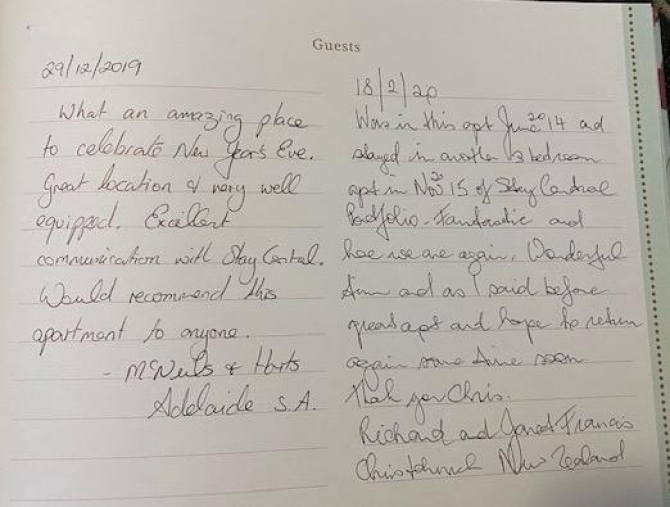 Guests
29/12/2019
What an amazing place
to celebrate New Year's Eve.
Great location & very well
equipped. Excellent
communication with Stay Central.
Would recommend this
apartment to anyone.
- McNeils & Harts
Adelaide S.A.
18/2/20
Was in this apt June 2014 and
stayed in another 3 bedroom
apt in Nov 2015 of Stay Central
Portfolio - Fantastic and
here we are again. Wonderful
time and as I said before
great apt and hope to return
again some time soon
Thank you Chris.
Richard and Janet Francis
Christchurch New Zealand